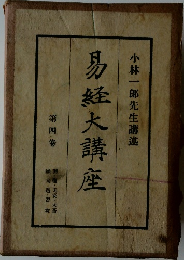 小林一郎先生講述
易経大講座
第四巻